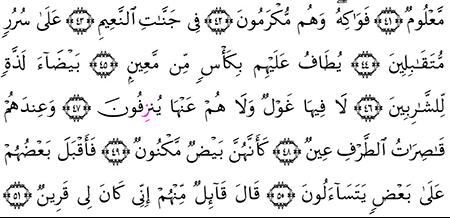 مَّعْلُومٌ ﴿٤١﴾ فَوَٰكِهُ وَهُم مُّكْرَمُونَ ﴿٤٢﴾ فِى جَنَّٰتِ ٱلنَّعِيمِ ﴿٤٣﴾ عَلَىٰ سُرُرٍ
مُّتَقَٰبِلِينَ ﴿٤٤﴾ يُطَافُ عَلَيْهِم بِكَأْسٍ مِّن مَّعِينٍۭ ﴿٤٥﴾ بَيْضَآءَ لَذَّةٍ
لِّلشَّٰرِبِينَ ﴿٤٦﴾ لَا فِيهَا غَوْلٌ وَلَا هُمْ عَنْهَا يُنزِفُونَ ﴿٤٧﴾ وَعِندَهُمْ
قَٰصِرَٰتُ ٱلطَّرْفِ عِينٌ ﴿٤٨﴾ كَأَنَّهُنَّ بَيْضٌ مَّكْنُونٌ ﴿٤٩﴾ فَأَقْبَلَ بَعْضُهُمْ
عَلَىٰ بَعْضٍ يَتَسَآءَلُونَ ﴿٥٠﴾ قَالَ قَآئِلٌ مِّنْهُمْ إِنِّى كَانَ لِى قَرِينٌ ﴿٥١﴾